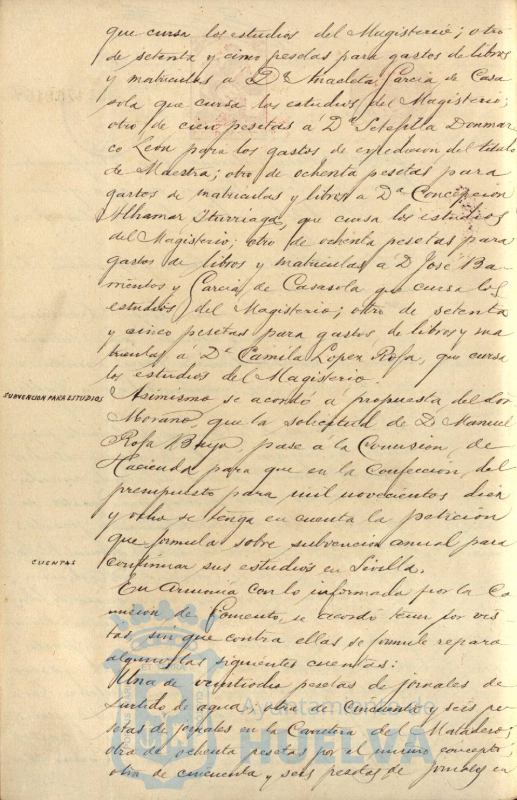 que cursa los estudios del Magisterio; otro
de setenta y cinco pesetas para gastos de libros
y matriculas á Dª Anacleta Garcia de Casa
sola que cursa los estudios del Magisterio;
otro de cien pesetas á Dª Setefilla Donmar
co Leon para los gastos de expedicion del titulo
de Maestra; otro de ochenta pesetas para
gastos de matriculas y libros a Dª Concepcion
Alhamar Iturriaga, que cursa los estudios
del Magisterio; otro de ochenta pesetas para
gastos de libros y matriculas á D José Ba-
rrientos y Garcia de Casasola que cursa los
estudios del Magisterio; otro de setenta
y cinco pesetas para gastos de libros y ma
triculas á Dª Camila Lopez Rofa, que cursa
los estudios del Magisterio.
SUBVENCION PARA ESTUDIOS
Asimismo se acordó á propuesta del Sor
Morano, que la solicitud de D Manuel
Rofa, pase á la Comision de
Hacienda para que en la Confeccion del
presupuesto para mil novecientos diez
y ocho se tenga en cuenta la peticion
que formula sobre subvencion anual para
continuar sus estudios en Sevilla.
CUENTAS
En armonia con lo informado por la Co
mision de Fomento, se acordó tener por vis
tas, sin que contra ellas se formule reparo
alguno las siguientes cuentas:
Una de veintiocho pesetas de jornales de
surtido de agua; otra de cincuenta y seis pe
setas de jornales en la Carretera del Matadero;
otra de ochenta pesetas por el mismo concepto;
otra de cincuenta y seis pesetas de jornales en
Ayuntamiento de
HUELVA